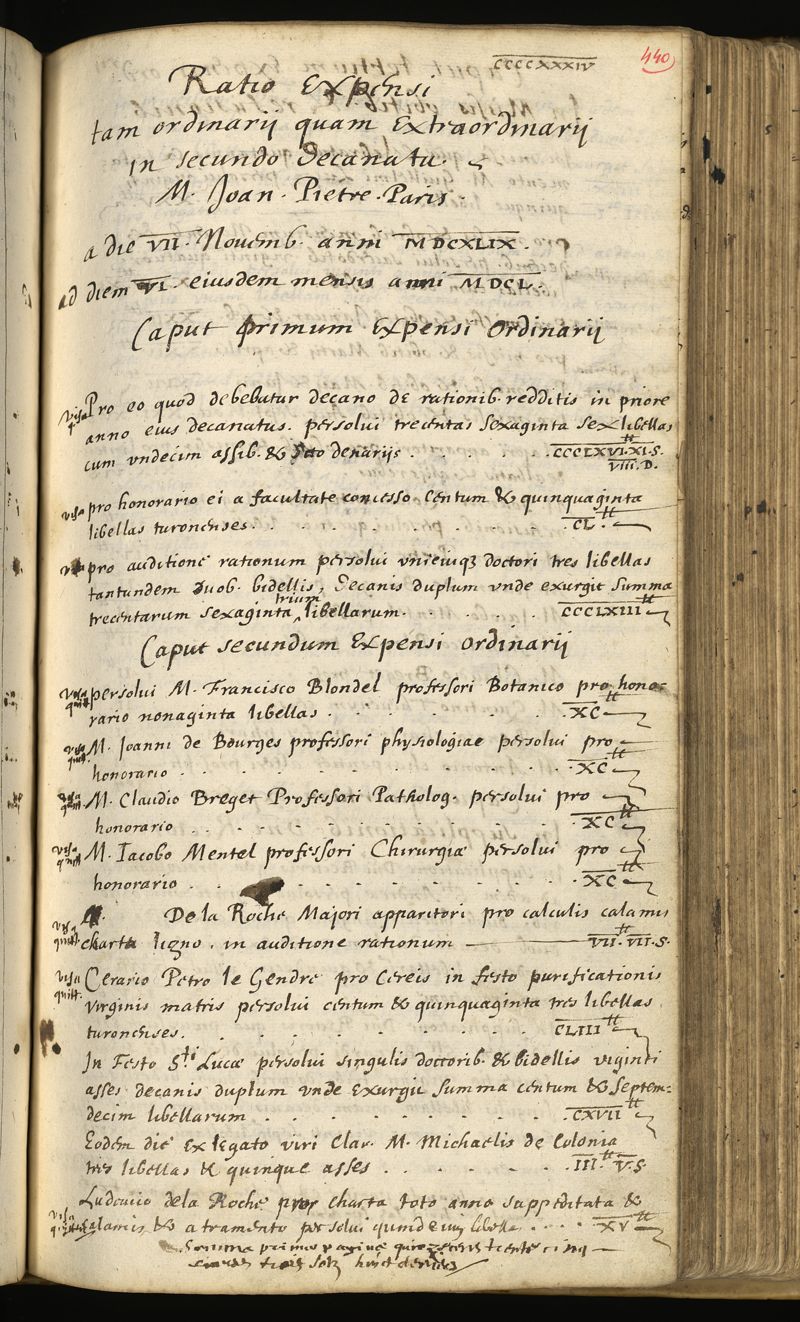 CCCCXXXIV
440
Ratio Expensi
tam ordinarij quam Extraordinarij
in secundo decanatu.
M. Joan. Pietre. Paris.
a die VII. Novemb. anni MDCXLIX.
ad diem VI. eiusdem mensis anni MDCL.
Caput primum Expensi Ordinarij
visa Pro eo quod debebatur decano de rationib. redditis in priore
q anno eius decanatus. persolui trecentas sexaginta sex libellas
cum vndecim assib. & octo denarijs . . . . . . CCCLXVI.tt XI.S.
VIII.D.
visa pro honorario ei a facultate concesso centum & quinquaginta
libellas turonenses . . . . . . . . . CL.tt
pro auditione rationum persolui vnicuiq3 doctori tres libellas
tantundem duob. bidellis, Decanis duplum vnde exurgit summa
trium
trecentarum sexaginta ‸ libellarum . . . . . . CCCLXIII tt
Caput secundum Expensi Ordinarij
visa persolui M. Francisco Blondel professori Botanico pro hono=
quitt. rario nonaginta libellas . . . . . . . . . XC tt
visa M. Joanni de Bourges professori physiologiae persolui pro
quitt. honorario . . . . . . . . . . . . XC tt
visa M. Claudio Breget Professori Patholog. persolui pro
quitt. honorario . . . . . . . . . . . . XC tt
visa M. Iacobo Mentel professori Chirurgiæ persolui pro
quitt honorario . . . . . . . . . . . . XC tt
De la Roche Majori apparitori pro calculis calamis
visa quitt. charta ligno, in auditione rationum — VII.tt VII.S.
visa Cerario Petro le Gendre pro Cereis in festo purificationis
quitt. Virginis matris persolui centum & quinquaginta tres libellas
turonenses. . . . . . . . . . . CLIII tt
In Festo Sti Lucæ persolui singulis doctorib. & bidellis viginti
asses decanis duplum vnde exurgit summa centum & septem=
decim libellarum . . . . . . . . . CXVII tt
Eodem die ex legato viri Clar. M. Michaelis de Colonia
tres libellas & quinque asses . . . . . . . III.tt V.S.
Ludovico dela Roche pro charta toto anno suppeditata &
visa calamis & atramento persolui quindecim libellas . . . . XV tt
Somma primæ paginæ